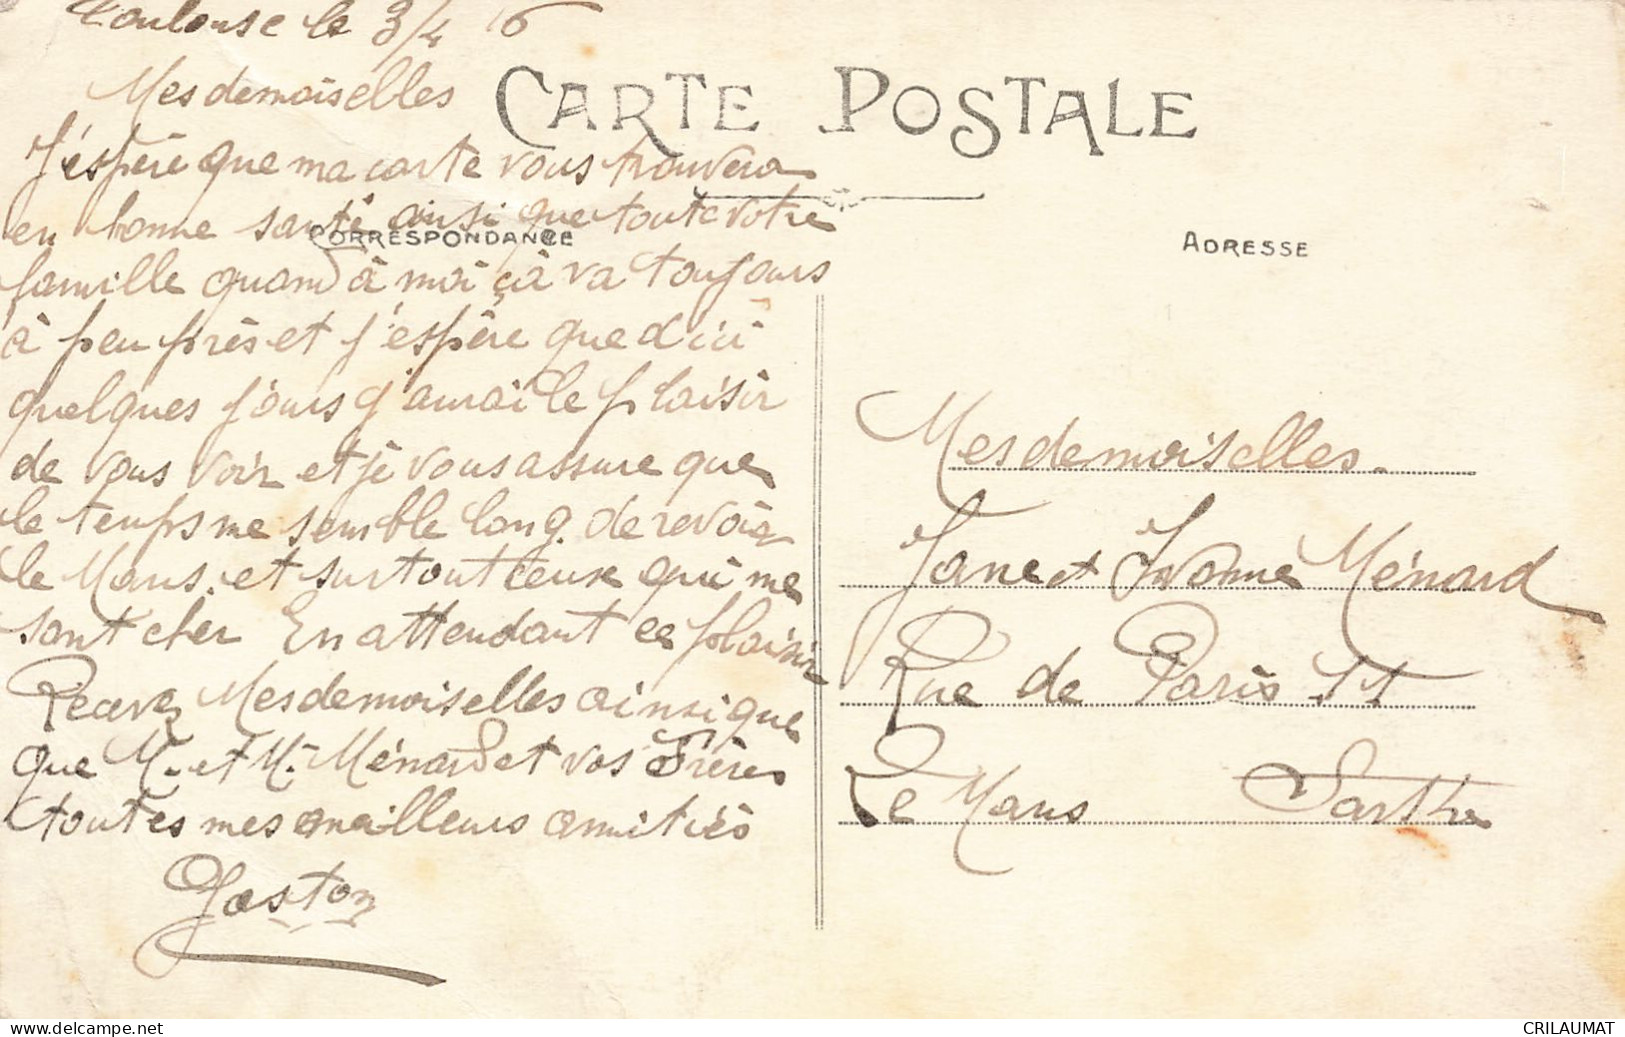 Toulouse le 3/4 16
Mesdemoiselles
CARTE POSTALE
J'éspère que ma carte vous trouvera
en bonne santé ainsi que toute votre
CORRESPONDANCE
ADRESSE
famille quand à moi çà va toujours
à peu près et j'espère que d'ici
quelques jours j'aurai le plaisir
de vous voir et je vous assure que
le temps me semble long. de revoir
le Mans. et surtout ceux qui me
sont cher En attendant ce plaisir
Recevez Mesdemoiselles ainsi que
que M. et M. Ménard et vos Frères
toutes mes meilleurs amitiés
Gaston
Mesdemoiselles.
Jane et Yvonne Ménard
Rue de Paris 55
Le Mans Sarthe
www.delcampe.net
CRILAUMAT